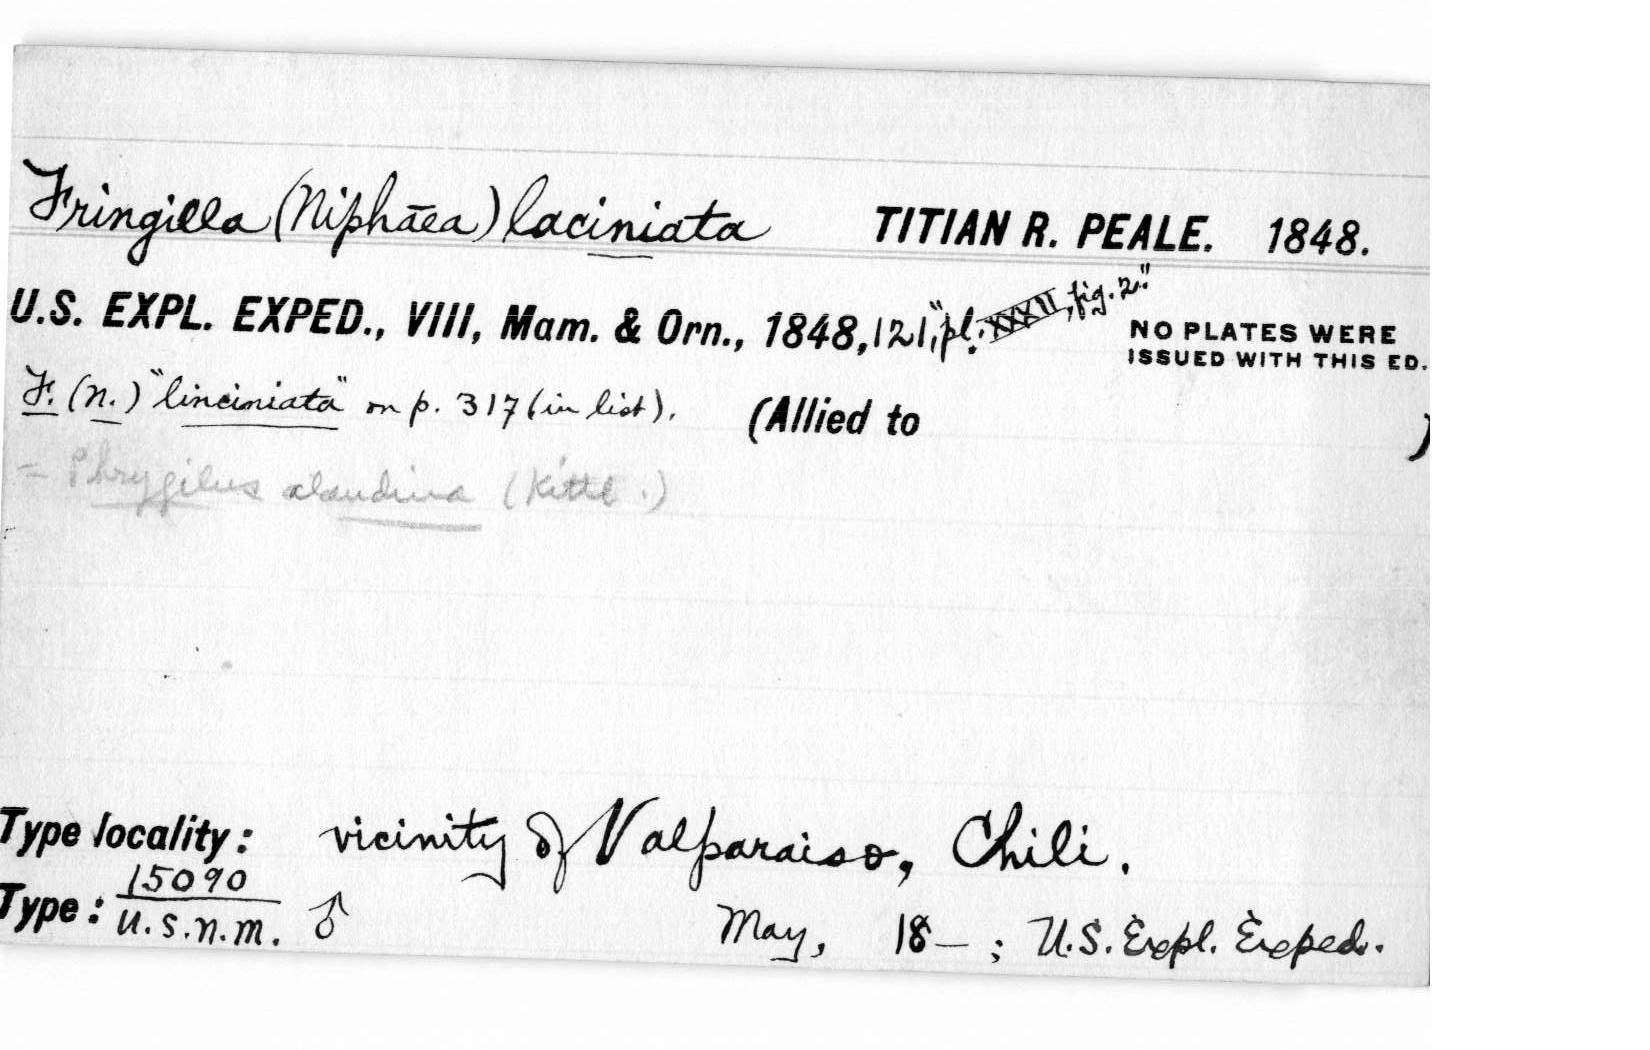 Fringilla (Niphæa) laciniata TITIAN R. PEALE. 1848.
U.S. EXPL. EXPED., VIII, Mam. & Orn., 1848, 121, "pl. XXXII, fig. 2." NO PLATES WERE
ISSUED WITH THIS ED.
F. (N.) "linciniata" on p. 317 (in list). (Allied to )
= Phrygilus alaudina (Kittl.)
Type locality: vicinity of Valparaiso, Chili.
Type: 15090
U.S.N.M. ♂ May, 18– ; U.S. Expl. Exped.